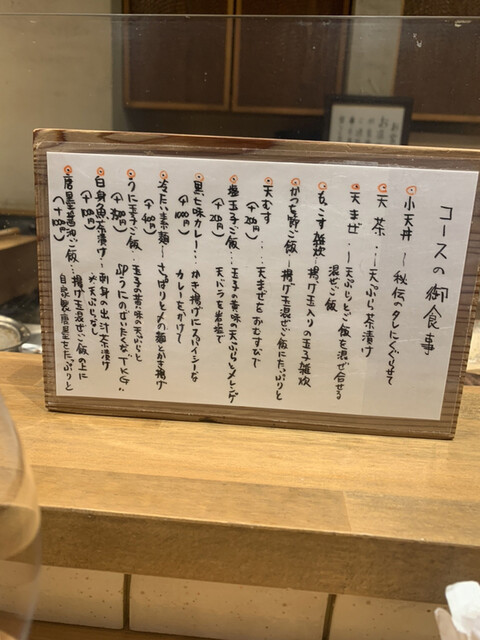 コースの御食事
小天丼 ― 秘伝のタレにくぐらせて
天茶 ― 天ぷら茶漬け
天まぜ ― 天ぷらとご飯を混ぜ合せる
混ぜご飯
もこす雑炊 揚げ玉入りの玉子雑炊
かつを節ご飯 ― 揚げ玉混ぜご飯にたっぷりと
天むす ・・・ 天まぜをおむすびで
(+200円)
塩玉子ご飯 … 玉子の黄味の天ぷらとメレンゲ
(+200円) 天バラを岩塩で
黒七味カリー … かき揚げにスパイシーな
(+1000円) カレーをかけて
冷たい素麺 ― さっぱり〆の麺とかき揚げ
(+400円)
うに玉子ご飯 … 玉子の黄味の天ぷらと
SPうにのぜいたくなTKG
白身魚茶漬け … 刺身の出汁茶漬け
※天ぷらなし
唐墨醤油ご飯 … 揚げ玉混ぜご飯の上に
自家製唐墨をたっぷりと